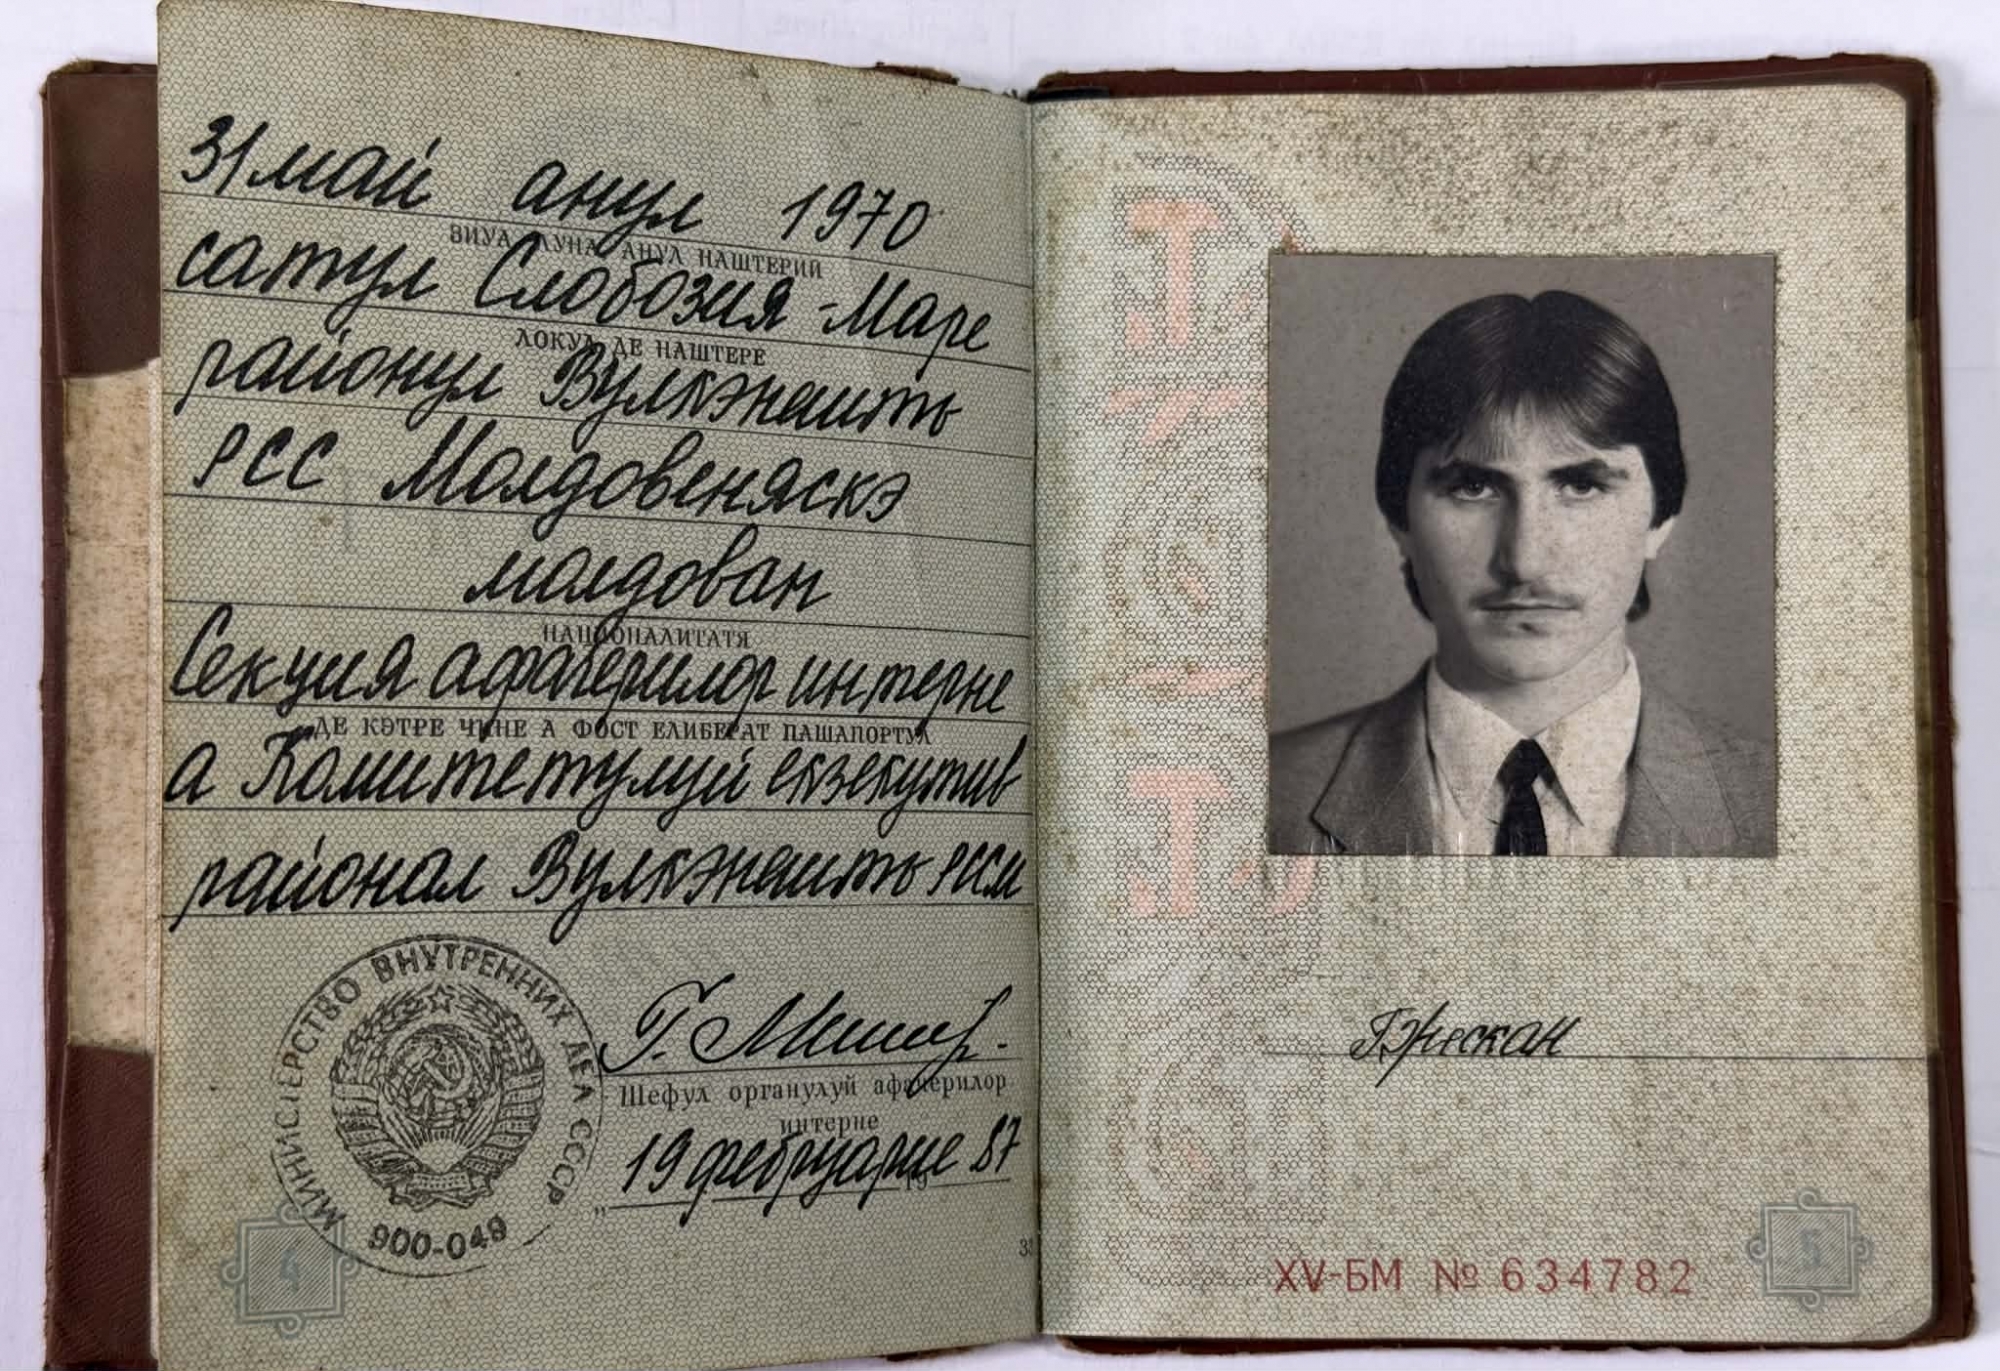 31 май анул 1970
ЗИУА ЛУНА АНУЛ НАШТЕРИЙ
сатул Слобозия-Маре
ЛОКУЛ ДЕ НАШТЕРЕ
районул Вулкэнешть
РСС Молдовеняскэ
молдован
НАЦИОНАЛИТАТЯ
Секция афачерилор интерне
ДЕ КЭТРЕ ЧИНЕ А ФОСТ ЕЛИБЕРАТ ПАШАПОРТУЛ
а Комитетулуй екзекутив
районал Вулкэнешть РССМ
МИНИСТЕРСТВО ВНУТРЕННИХ ДЕЛ СССР
900-049
Шефул органулуй афачерилор
интерне
19 фебруарие 87
19
4
XV-БМ № 634782
5